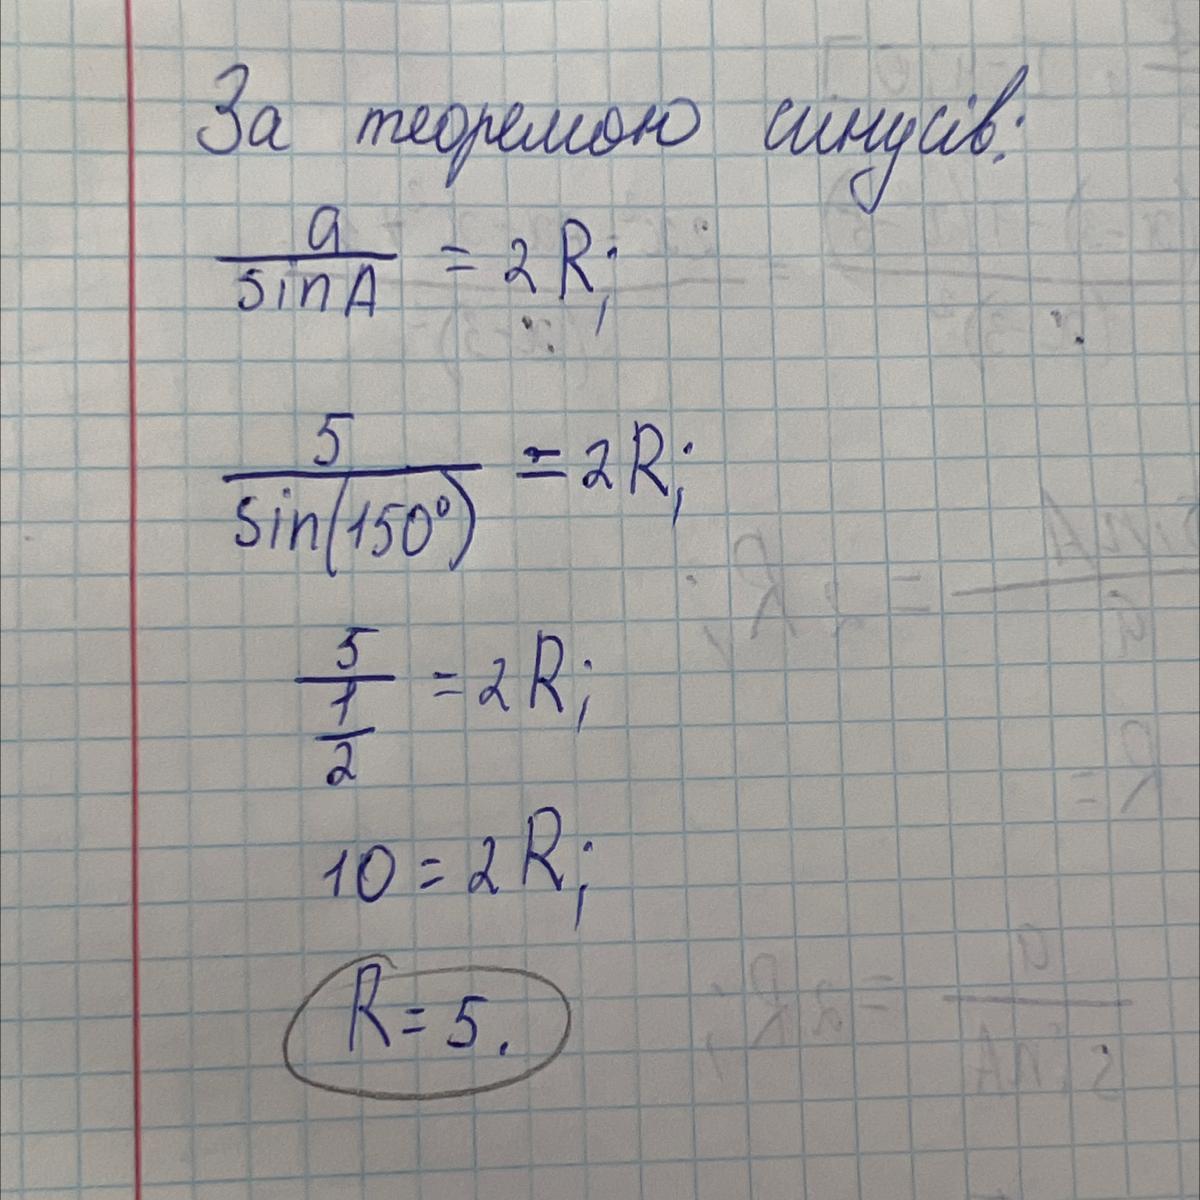 За теоремою синусів:
a/sinA = 2R;
5/sin(150°) = 2R;
5/(1/2) = 2R;
10 = 2R;
R = 5.